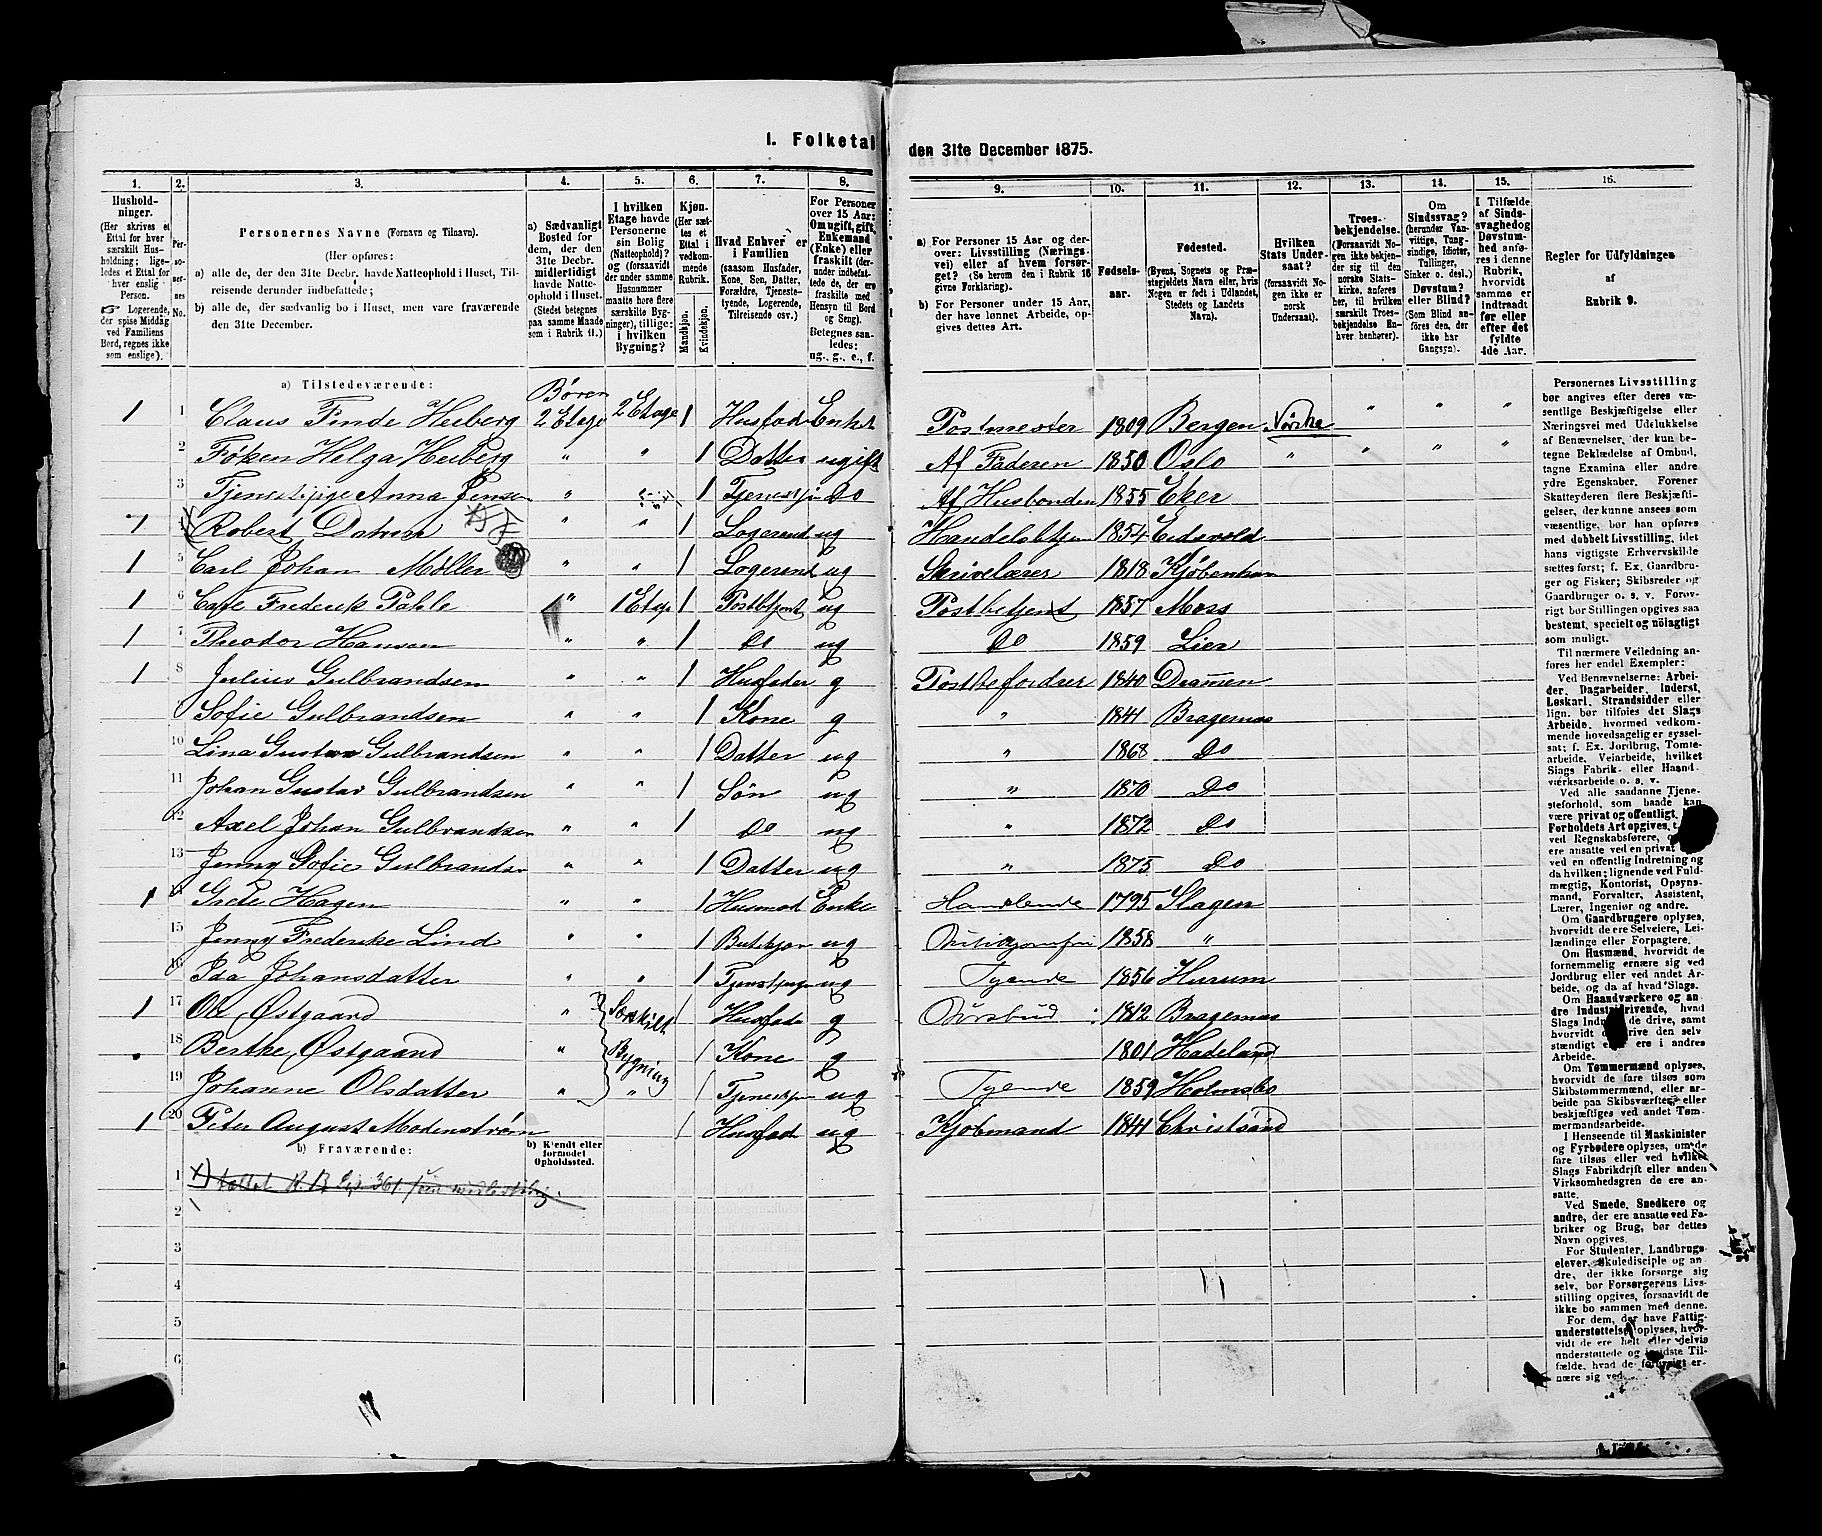 I. Folketal den 31te December 1875.
1. 2. 3. 4. 5. 6. 7. 8. 9. 10. 11. 12. 13. 14. 15. 16.
Husholdninger.
(Her skrives et
Ettal for hver
særskilt Hus-
holdning; lige-
ledes et Ettal for
hver enslig
Person.
Logerende,
der spise Middag
ved Familiens
Bord, regnes ikke
som enslige).
Personernes No.
Personernes Navne (Fornavn og Tilnavn).
(Her opføres:
a) alle de, der den 31te Decbr. havde Natteophold i Huset, Til-
reisende derunder indbefattede;
b) alle de, der sædvanlig bo i Huset, men vare fraværende
den 31te December.
a) Sædvanligt
Bosted for
dem, der den
31te Decbr.
midlertidigt
havde Natte-
ophold i Huset.
(Stedet betegnes
paa samme Maade
som i Rubrik 11.)
I hvilken
Etage havde
Personerne
sin Bolig
(Natteophold)?
og (forsaavidt
der under samme
Husnummer
maatte høre flere
særskilte Byg-
ninger), tillige:
i hvilken
Bygning?
Kjøn.
(Her sæt-
tes et
Ettal i
vedkom-
mende
Rubrik.
Mandkjøn.
Kvindekjøn.
Hvad Enhver er
i Familien
(saasom Husfader,
Kone, Søn, Datter,
Forældre, Tjeneste-
tyende, Logerende,
Tilreisende osv.)
For Personer
over 15 Aar:
Om ugift, gift,
Enkemand
(Enke) eller
fraskilt (der-
under indbefat-
tede de, der ere
fraskilte med
Hensyn til Bord
og Seng).
Betegnes saa-
ledes:
ug., g., e., f.
a) For Personer 15 Aar og der-
over: Livsstilling (Nærings-
vei) eller af hvem forsør-
get? (Se herom den i Rubrik 16
givne Forklaring).
b) For Personer under 15 Aar,
der have lønnet Arbeide, op-
gives dettes Art.
Fødsels-
aar.
Fødested.
(Byens, Sognets og Præ-
stegjeldets Navn eller, hvis
Nogen er født i Udlandet,
Stedets og Landets
Navn).
Hvilken
Stats Under-
saat?
(forsaavidt No-
gen ikke er
norsk
Undersaat).
Troes-
bekjendelse.
(Forsaavidt No-
gen ikke bekjen-
der sig til den
norske Stats-
kirke, anføres
her, til hvilken
særskilt Troes-
bekjendelse En-
hver henhører).
Om
Sindssvag?
(herunder Van-
vittige, Tung-
sindige, Idioter,
Tullinger,
Sinker o. desl.)
Døvstum?
eller Blind?
(Som Blind an-
føres den, der
ikke har
Gangsyn).
I Tilfælde
af Sinds-
svaghed og
Døvstum-
hed anfø-
res i denne
Rubrik,
hvorvidt
samme er
indtraadt
før eller
efter det
fyldte
4de Aar.
Regler for Udfyldningen
af
Rubrik 9.
a) Tilstedeværende:
1 1 Claus Finde Heiberg Børsen 2 Etage 2 Etage 1 Husfader Enkem Postmester 1809 Bergen Norske " " "
2 Frøken Helga Heiberg " " 1 Datter ugift Af Faderen 1850 Oslo " " " "
3 Tjenestepige Anna Jensen " 1 Tjenestpi Do Af Husbonden 1855 Eker
1 4 Robert " " 1 Logerend ug Handelsbetjen 1854 Eidsvold
1 5 Carl Johan Møller " " 1 Logerend ug Skrivelærer 1818 Kjøbenhavn
1 6 Carl Frederik Pahle " 1 Etage 1 Postbetjent ug Postbetjent 1857 Moss
1 7 Theodor Hansen " " 1 Do ug Do 1859 Lier
1 8 Julius Gulbrandsen " " 1 Husfader g Postbefordrer 1840 Drammen
Sofie Gulbrandsen " " 1 Kone g " 1841 Bragernæs
10 Lina Gustava Gulbrandsen " " 1 Datter ug " 1868 Do
11 Johan Gustav Gulbrandsen " " 1 Søn ug " 1870 Do
12 Axel Johan Gulbrandsen " " 1 Do ug " 1872 Do
13 Jenny Sofie Gulbrandsen " " 1 Datter ug " 1875 Do
1 14 Grete Hagen " " 1 Husmod Enke Handlende 1795 Slagen
15 Jenny Frederike Lind " " 1 Butikjom ug Butikjomfru 1858 "
16 Ida Johansdatter " " 1 Tjenestpige ug Tyende 1856 Hurum
1 17 Ole Østgaard " Særskilt 1 Husfade g Børsbud 1812 Bragernæs
18 Berthe Østgaard " Bygning 1 Kone g 1801 Hadeland
19 Johanne Olsdatter " " 1 Tjenestpi ug Tyende 1859 Holmsbo
1 20 Peter August Modenstrøm 1 Husfade ug Kjøbmand 1841 Christiansand
b) Fraværende:
b) Kjendt eller
formodet
Opholdssted.
1 x) tallet
2
3
4
5
6
Personernes Livsstilling
bør angives efter deres væ-
sentlige Beskjæftigelse eller
Næringsvei med Udelukkelse
af Benævnelser, der kun be-
tegne Beklædelse af Ombud,
tagne Examina eller andre
ydre Egenskaber. Forener
Skatteyderen flere Beskjæfti-
gelser, der kunne ansees som
væsentlige, bør han opføres
med dobbelt Livsstilling, idet
hans vigtigste Erhvervskilde
sættes først; f. Ex. Gaardbru-
ger og Fisker; Skibsreder og
Gaardbruger o. s. v. Forøv-
rigt bør Stillingen opgives saa
bestemt, specielt og nøiagtigt
som muligt.
Til nærmere Veiledning an-
føres her endel Exempler:
Ved Benævnelserne: Arbei-
der, Dagarbeider, Inderst,
Løskarl, Strandsidder eller
lign. bør tilføies det Slags
Arbeide, hvormed vedkom-
mende hovedsagelig er syssel-
sat; f. Ex. Jordbrug, Tomte-
arbeide, Veiarbeide, hvilket
Slags Fabrik- eller Haand-
værksarbeide o. s. v.
Ved alle saadanne Tjene-
steforhold, som baade kan
være privat og offentligt,
Forholdets Art opgives, t.
ved Regnskabsførere,
ere ansatte ved en privat
ved en offentlig Indretning og
da hvilken; lignende ved Fuld-
mægtig, Kontorist, Opsyns-
mand, Forvalter, Assistent,
Lærer, Ingeniør og andre.
Om Gaardbrugere oplyses,
hvorvidt de ere Selveiere, Lei-
lændinge eller Forpagtere.
Om Husmænd, hvorvidt de
fornemmelig ernære sig ved
Jordbrug eller ved andet Ar-
beide, og da af hvad Slags.
Om Haandværkere og an-
dre Industridrivende, hvad
Slags Industri de drive, samt
hvorvidt de drive den selv-
stændigt eller ere i andres
Arbeide.
Om Tømmermænd oplyses,
hvorvidt de fare tilsøs som
Skibstømmermænd, eller ar-
beide paa Skibsværfter eller
beskjæftiges ved andet Tøm-
mermandsarbeide.
I Henseende til Maskinister
og Fyrbødere oplyses, om de
fare tilsøs eller ved hvilket
Slags Fabrikdrift eller anden
Virksomhedsgren de ere an-
satte.
Ved Smede, Snedkere og
andre, der ere ansatte ved Fa-
briker og Brug, bør dettes
Navn opgives.
For Studenter, Landbrugs-
elever, Skoledisciple og an-
dre, der ikke forsørge sig
selv, bør Forsørgerens Livs-
stilling opgives, forsaavidt de
ikke bo sammen med denne.
For dem, der have Fattig-
understøttelse, oplyses, hvor-
vidt de ere helt eller delvis
understøttede og i sidste Til-
fælde, hvad de forøvrigt er-
nære sig ved.